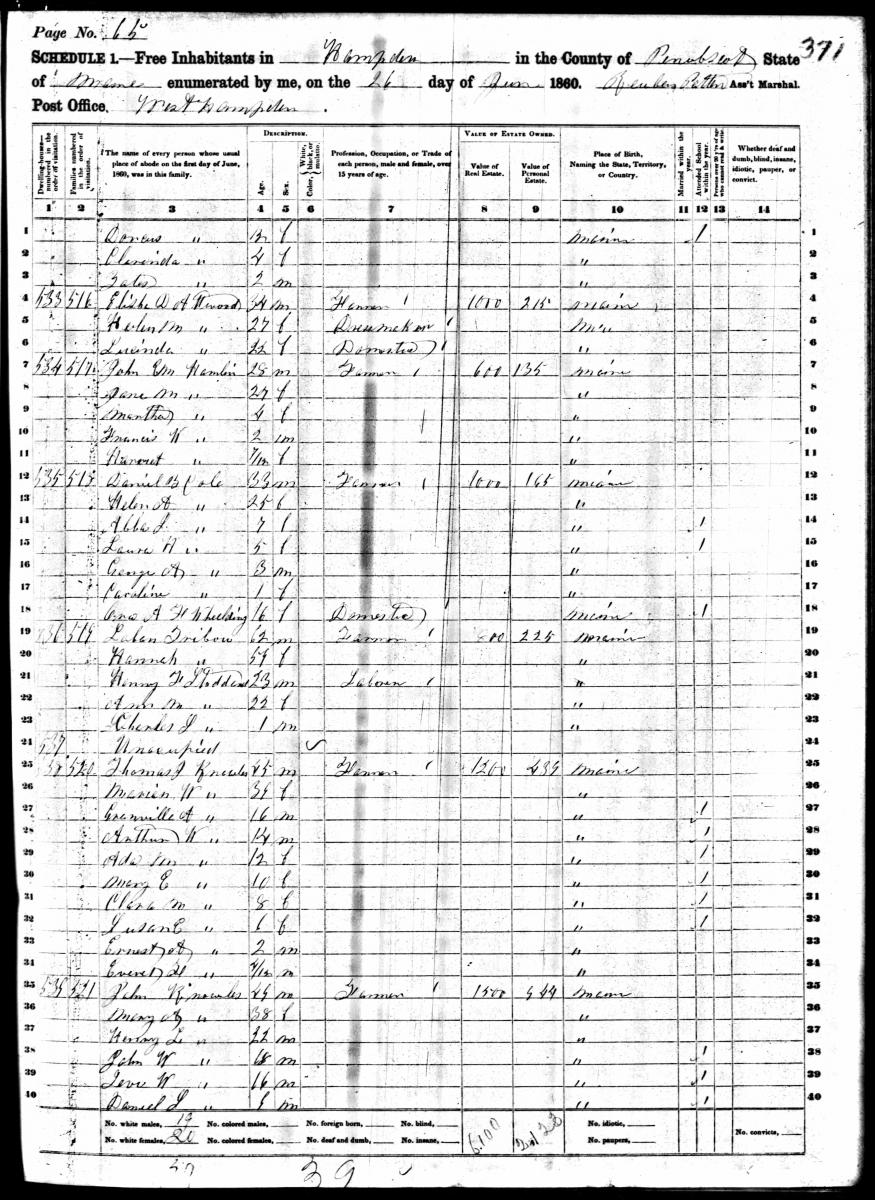 Page No. 65
371
SCHEDULE 1.—Free Inhabitants in Hampden in the County of Penobscot State
of Maine enumerated by me, on the 26 day of June 1860. Reuben Patten Ass't Marshal.
Post Office. West Hampden.
Dwelling-houses—numbered in the order of visitation.
Families numbered in the order of visitation.
The name of every person whose usual place of abode on the first day of June, 1860, was in this family.
DESCRIPTION.
Age.
Sex.
Color, White, black, or mulatto.
Profession, Occupation, or Trade of each person, male and female, over 15 years of age.
VALUE OF ESTATE OWNED.
Value of Real Estate.
Value of Personal Estate.
Place of Birth, Naming the State, Territory, or Country.
Married within the year.
Attended School within the year.
Persons over 20 y'rs of age who cannot read & write.
Whether deaf and dumb, blind, insane, idiotic, pauper, or convict.
1 2 3 4 5 6 7 8 9 10 11 12 13 14
1 Dorcus " f Maine / 1
2 Clarinda " 4 f " 2
3 " 2 m " 3
4 533 516 Elisha D Attwood 34 m Farmer 1000 215 Maine 4
5 Helen M " 27 f Dressmaker 5
6 Lucinda " 22 f Domestic " 6
7 534 517 John E M Hamlin 28 m Farmer 600 135 Maine 7
8 Jane M " 27 f " 8
9 Martha " 4 f " 9
10 Francis W " 2 m " 10
11 Harriet " 7/12 f " 11
12 535 518 Daniel B Cole 33 m Farmer 1000 165 Maine 12
13 Helen A " 25 f " 13
14 Abba J " 7 f " / 14
15 Laura H " 5 f " / 15
16 George A " 3 m " 16
17 Caroline " 1 f " 17
18 A F Wheelding 16 f Domestic Maine / 18
19 536 519 Laban Tribou 62 m Farmer 225 Maine 19
20 Hannah " f " 20
21 Henry F Stoddard 23 m Laborer " 21
22 Ann M " 22 f " 22
23 Charles L " 1 m " 23
24 537 Unoccupied 24
25 538 520 Thomas J Knowles 45 m Farmer 1200 439 Maine 25
26 W " 39 f " 26
27 Granville A " 16 m " / 27
28 Arthur W " 14 m " / 28
29 Ada M " 12 f " / 29
30 Mary E " 10 f " / 30
31 Clara M " 8 f " / 31
32 Susan E " 6 f " / 32
33 Ernest A " 2 m " 33
34 Everet H " m " 34
35 539 521 John Knowles 49 m Farmer 1500 544 Maine 35
36 Mary A " 38 f " 36
37 Henry L " 22 m " 37
38 John W " 18 m " / 38
39 Levi W " 16 m " / 39
40 Daniel L " m " / 40
No. white males, 19 No. colored males, No. foreign born, No. blind, No. idiotic,
No. white females, 20 No. colored females, No. deaf and dumb, No. insane, 6100 No. paupers, No. convicts,
39